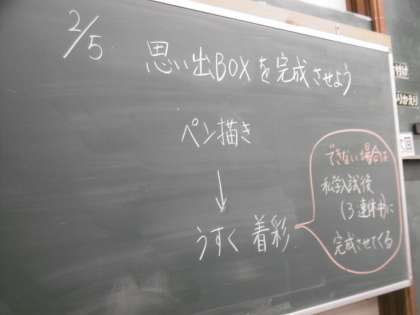 2/5
思い出BOXを完成させよう
ペン描き
↓
うすく 着彩
できない場合は
私学入試後
(3連休中)に
完成させてくる
りかえり
次回